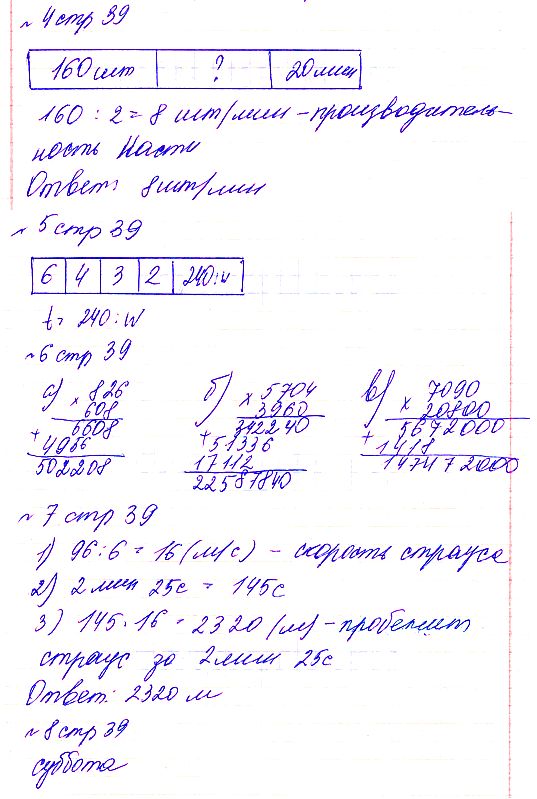 № 4 стр 39
160 шт ? 20 мин
160 : 2 = 8 шт/мин – производитель-
ность Насти
Ответ: 8 шт/мин
№ 5 стр 39
6 4 3 2 240:w
t = 240 : w
№ 6 стр 39
а) × 826 б) × 5704 в) × 7090
608 3960 20800
6608 342240 5672000
+ 4956 + 51336 + 1418
502208 17112 147472000
22587840
№ 7 стр 39
1) 96 : 6 = 16 (м/с) – скорость страуса
2) 2 мин 25с = 145с
3) 145 · 16 = 2320 (м) – пробежит
страус за 2 мин 25с
Ответ: 2320 м
№ 8 стр 39
суббота